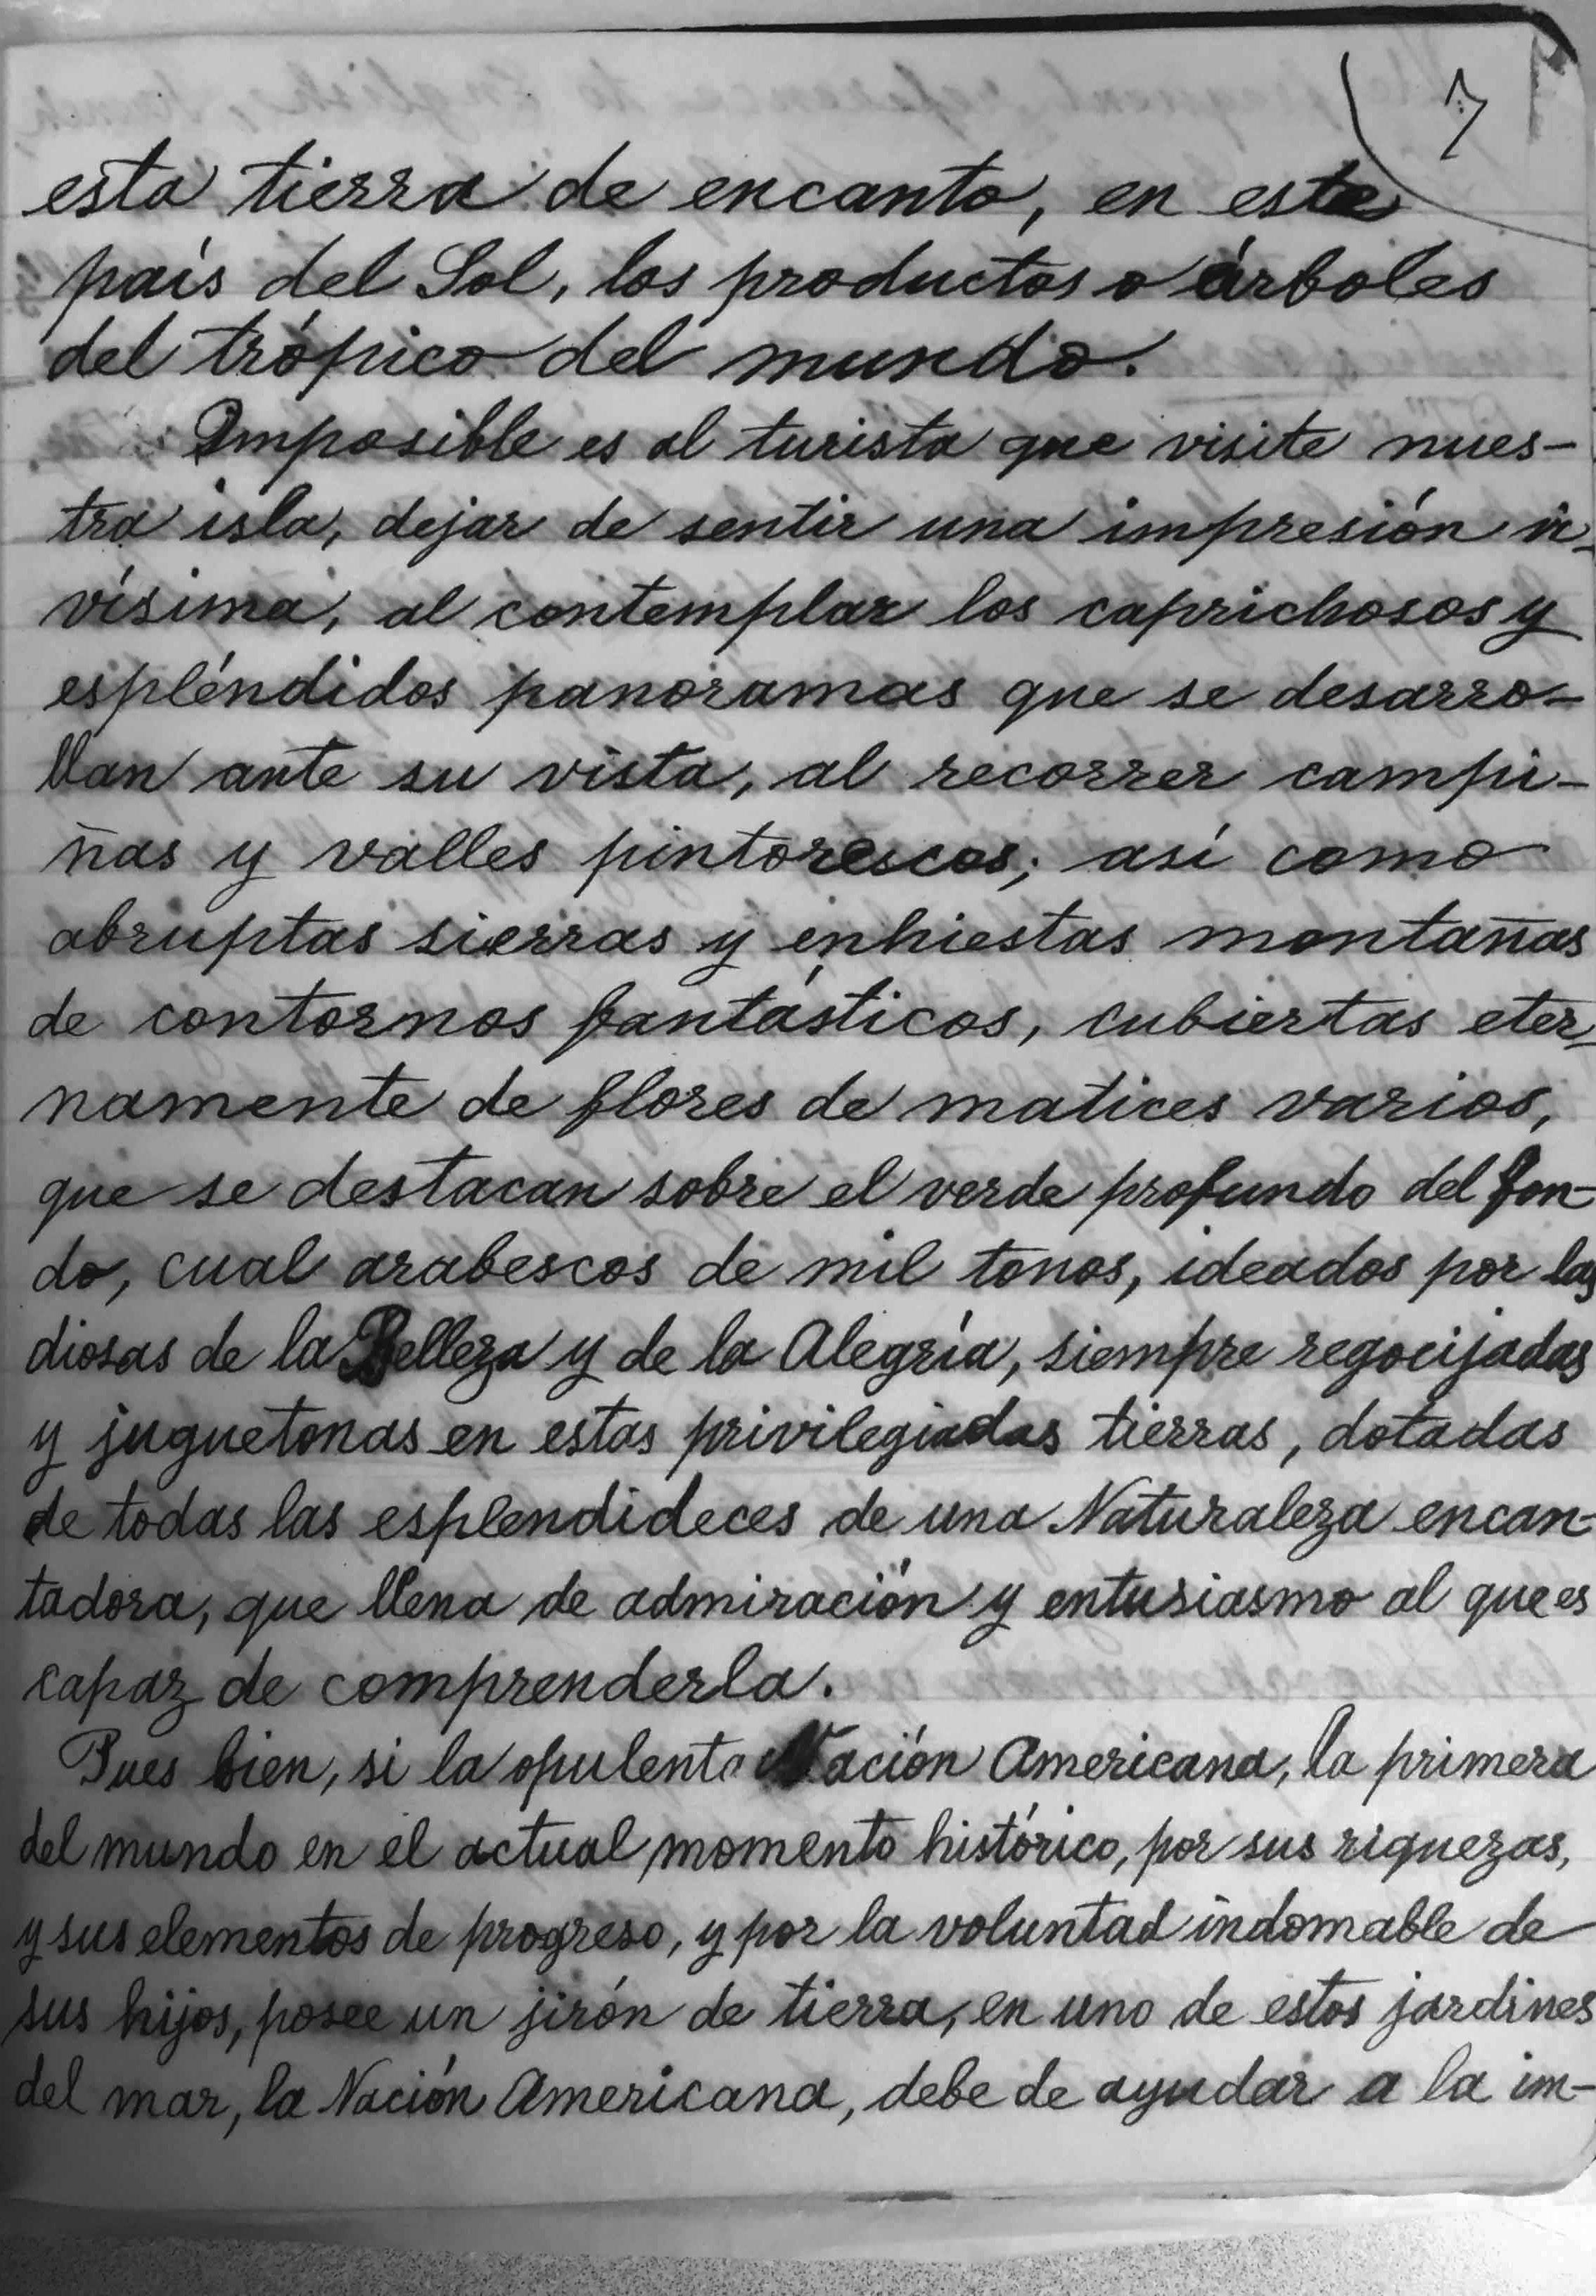 7
esta tierra de encanto, en este
país del Sol, los productos o árboles
del trópico del mundo.
Imposible es al turista que visite nues-
tra isla, dejar de sentir una impresión vi-
vísima, al contemplar los caprichosos y
espléndidos panoramas que se desarro-
llan ante su vista, al recorrer campi-
ñas y valles pintorescos; así como
abruptas sierras y enhiestas montañas
de contornos fantásticos, cubiertas eter-
namente de flores de matices varios,
que se destacan sobre el verde profundo del fon-
do, cual arabescos de mil tonos, ideados por las
diosas de la Belleza y de la Alegría, siempre regocijadas
y juguetonas en estas privilegiadas tierras, dotadas
de todas las esplendideces de una Naturaleza encan-
tadora, que llena de admiración y entusiasmo al que es
capaz de comprenderla.
Pues bien, si la opulenta Nación Americana, la primera
del mundo en el actual momento histórico, por sus riquezas,
y sus elementos de progreso, y por la voluntad indomable de
sus hijos, posee un jirón de tierra, en uno de estos jardines
del mar, la Nación Americana, debe de ayudar a la im-